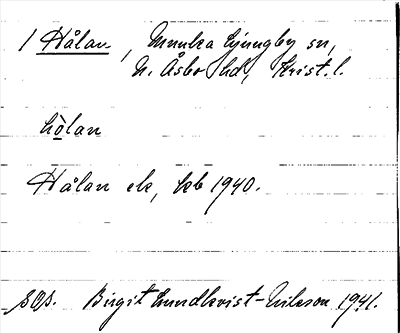 1 Hålan, Munka Ljungby sn,
N. Åsbo hd, Krist. l.
hòlan
Hålan ek, kb 1940.
SOS. Birgit Lundkvist-Nilsson 1941.